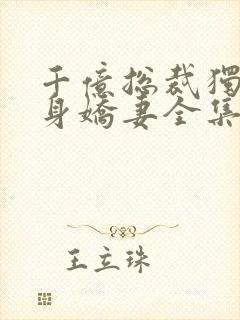 千億総裁獨
身嬌妻全集
王立珠